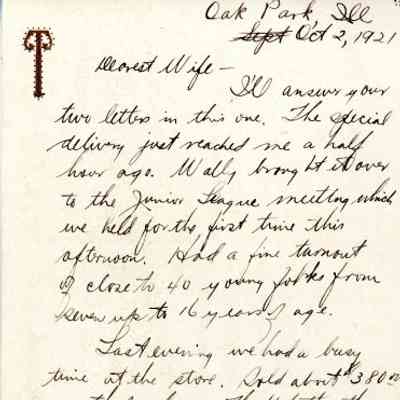 T
Oak Park, Ill
Sept Oct 2, 1921
Dearest Wife -
I'll answer your
two letters in this one. The special
delivery just reached me a half
hour ago. Wally brought it over
to the Junior League meeting which
we held for the first time this
afternoon. Had a fine turnout
of close to 40 young folks from
seven up to 16 years of age.
Last evening we had a busy
time at the store. Sold about $380